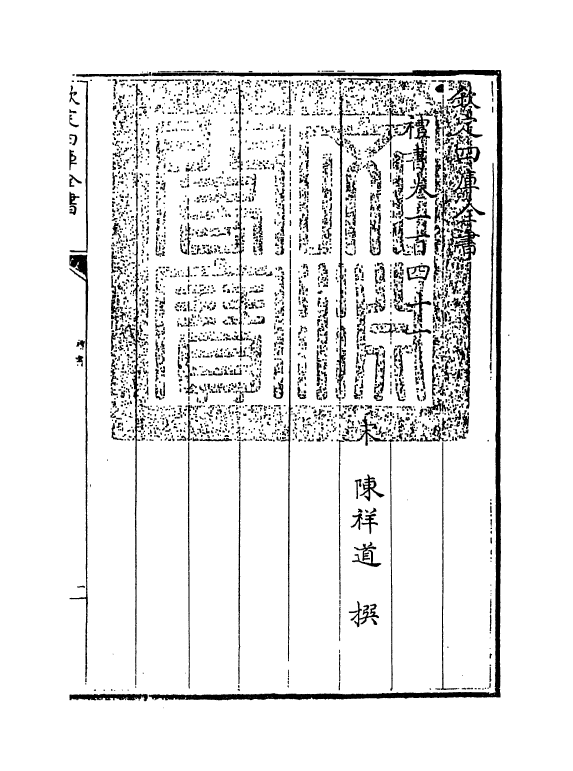 欽定四庫全書
禮書卷一百四十一
宋 陳祥道 撰
欽定四庫全書
禮書